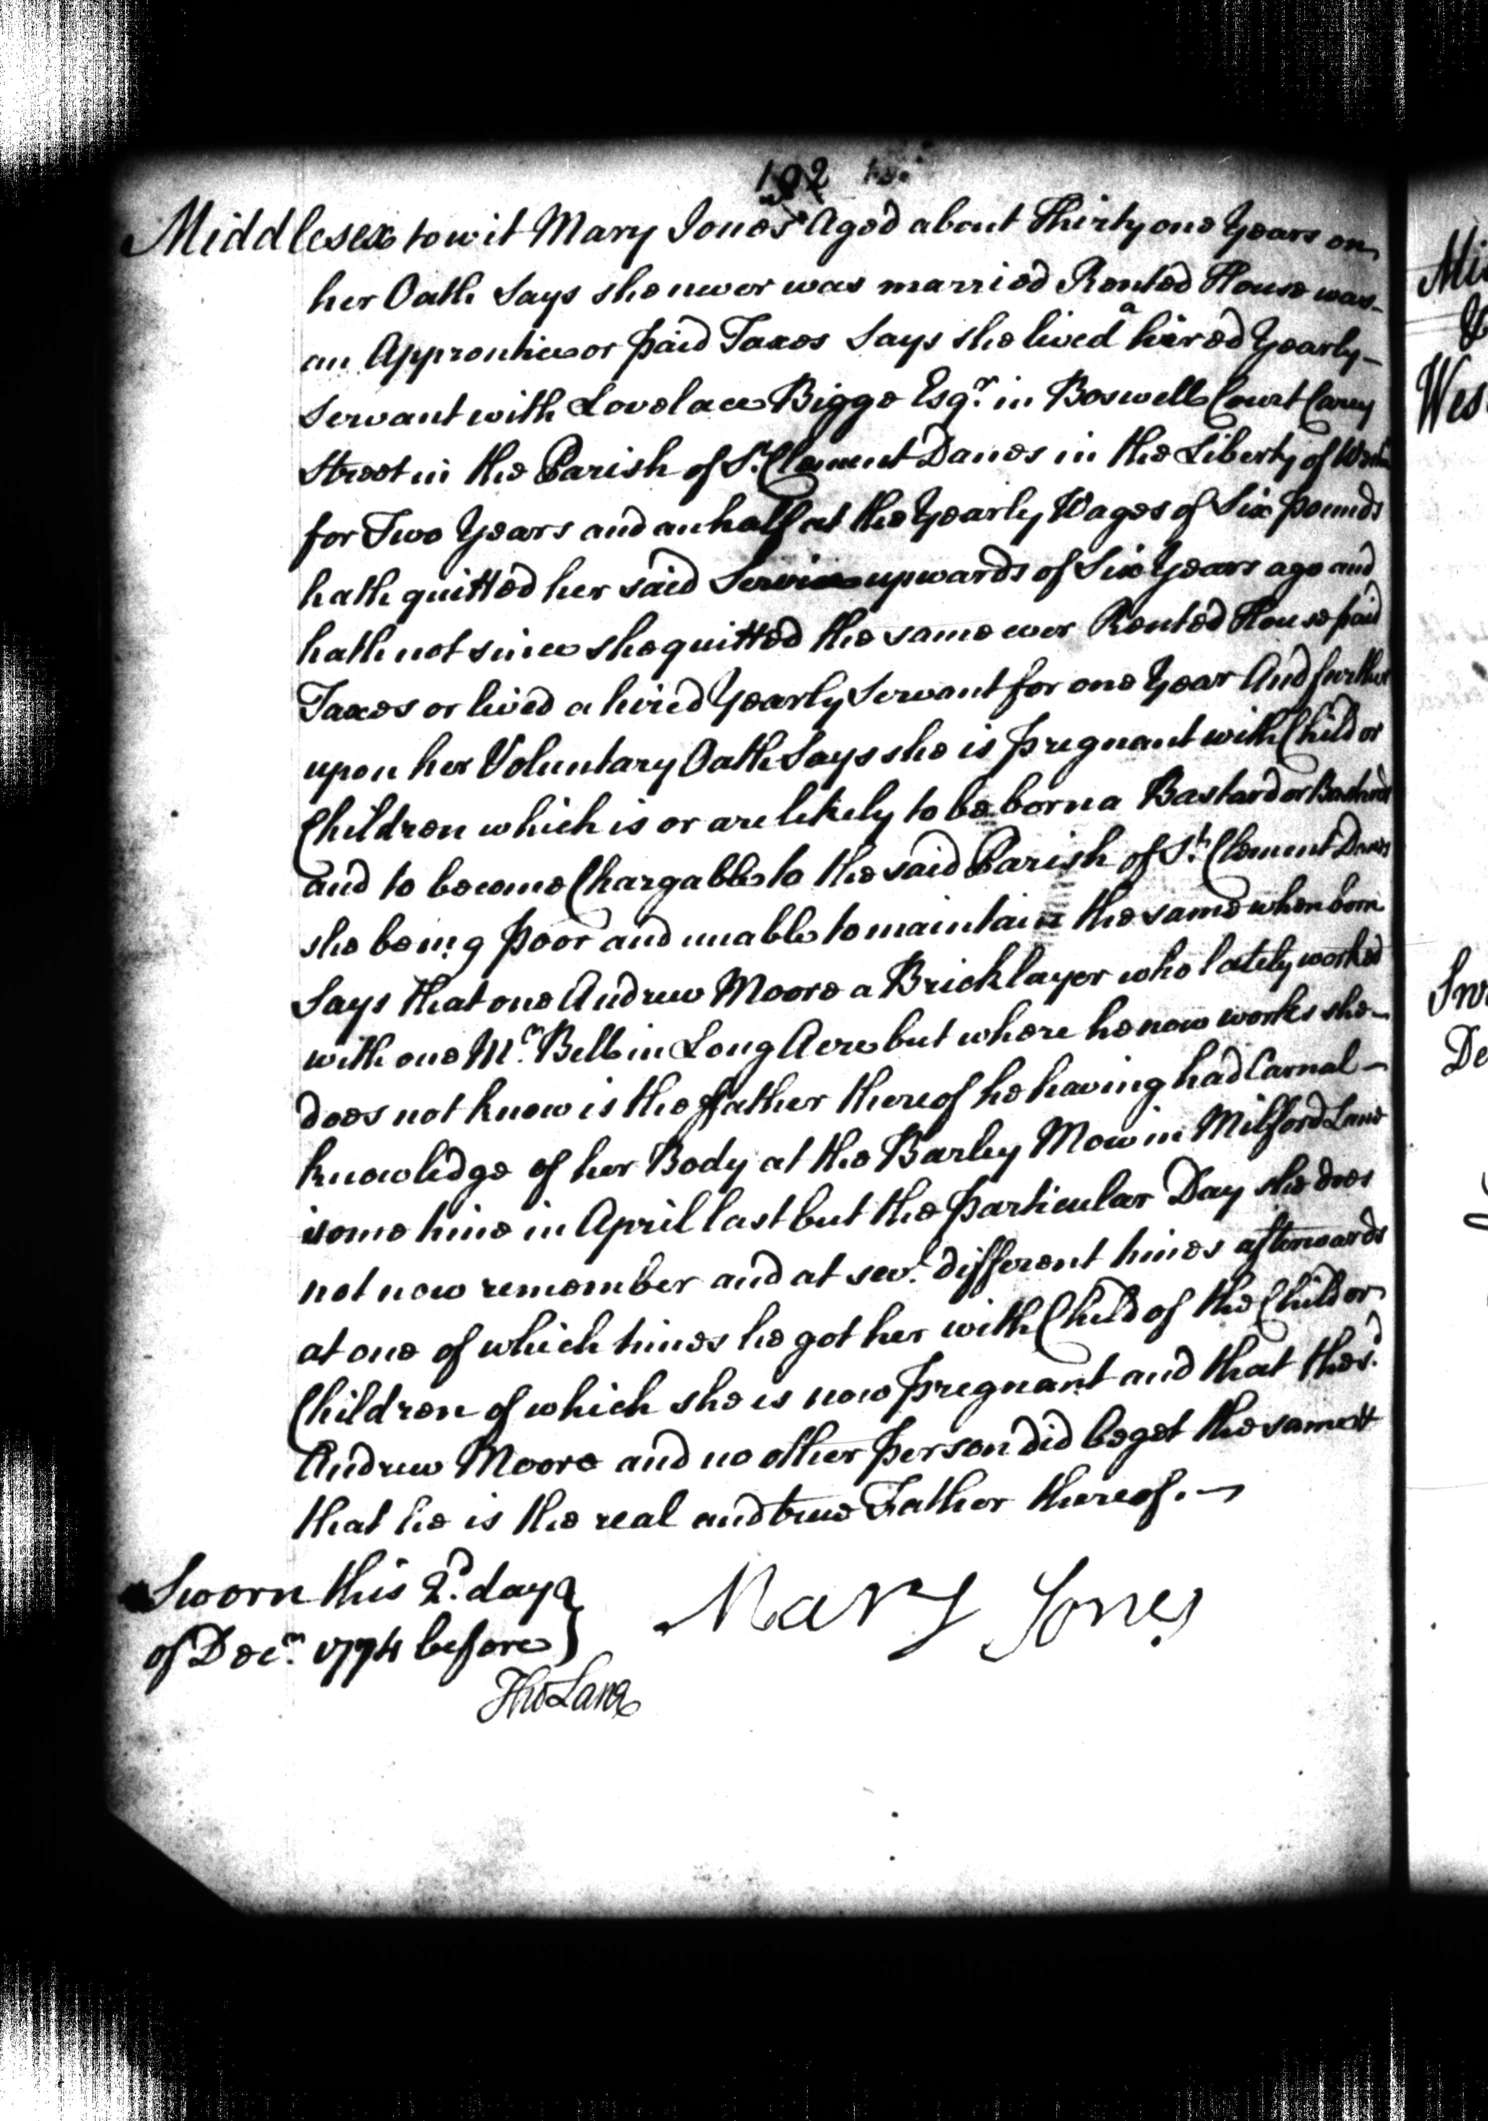 192
Middlesex to wit Mary Jones Aged about Thirty one Years on
her Oath Says she never was married Rented House was
an Apprentice or paid Taxes Says she lived a hired Yearly
Servant with Lovelace Bigge Esqr. in Boswell Court Carey
Street in the Parish of St. Clement Danes in the Liberty of Westmr
for Two Years and an half at the Yearly Wages of Six pounds
hath quitted her said Service upwards of Six Years ago and
hath not since she quitted the same ever Rented House paid
Taxes or lived a hired Yearly Servant for one Year And further
upon her Voluntary Oath Says she is pregnant with Child or
Children which is or are likely to be born a Bastard or Bastards
and to become Chargable to the said Parish of St. Clement Danes
she being poor and unable to maintain the same when born
Says that one Andrew Moore a Bricklayer who lately worked
with one Mr. Bell in Long Acre but where he now works she
does not know is the father thereof he having had Carnal
knowledge of her Body at the Barley Mow in Milford Lane
some time in April last but the particular Day she does
not now remember and at sevl. different times afterwards
at one of which times he got her with Child of the Child or
Children of which she is now pregnant and that the sd.
Andrew Moore and no other person did beget the same &
that he is the real and true Father thereof.
Sworn this 2d. day
of Decr. 1774 before
Mary Jones
Tho Lane
Mi
Wes
Swo
De